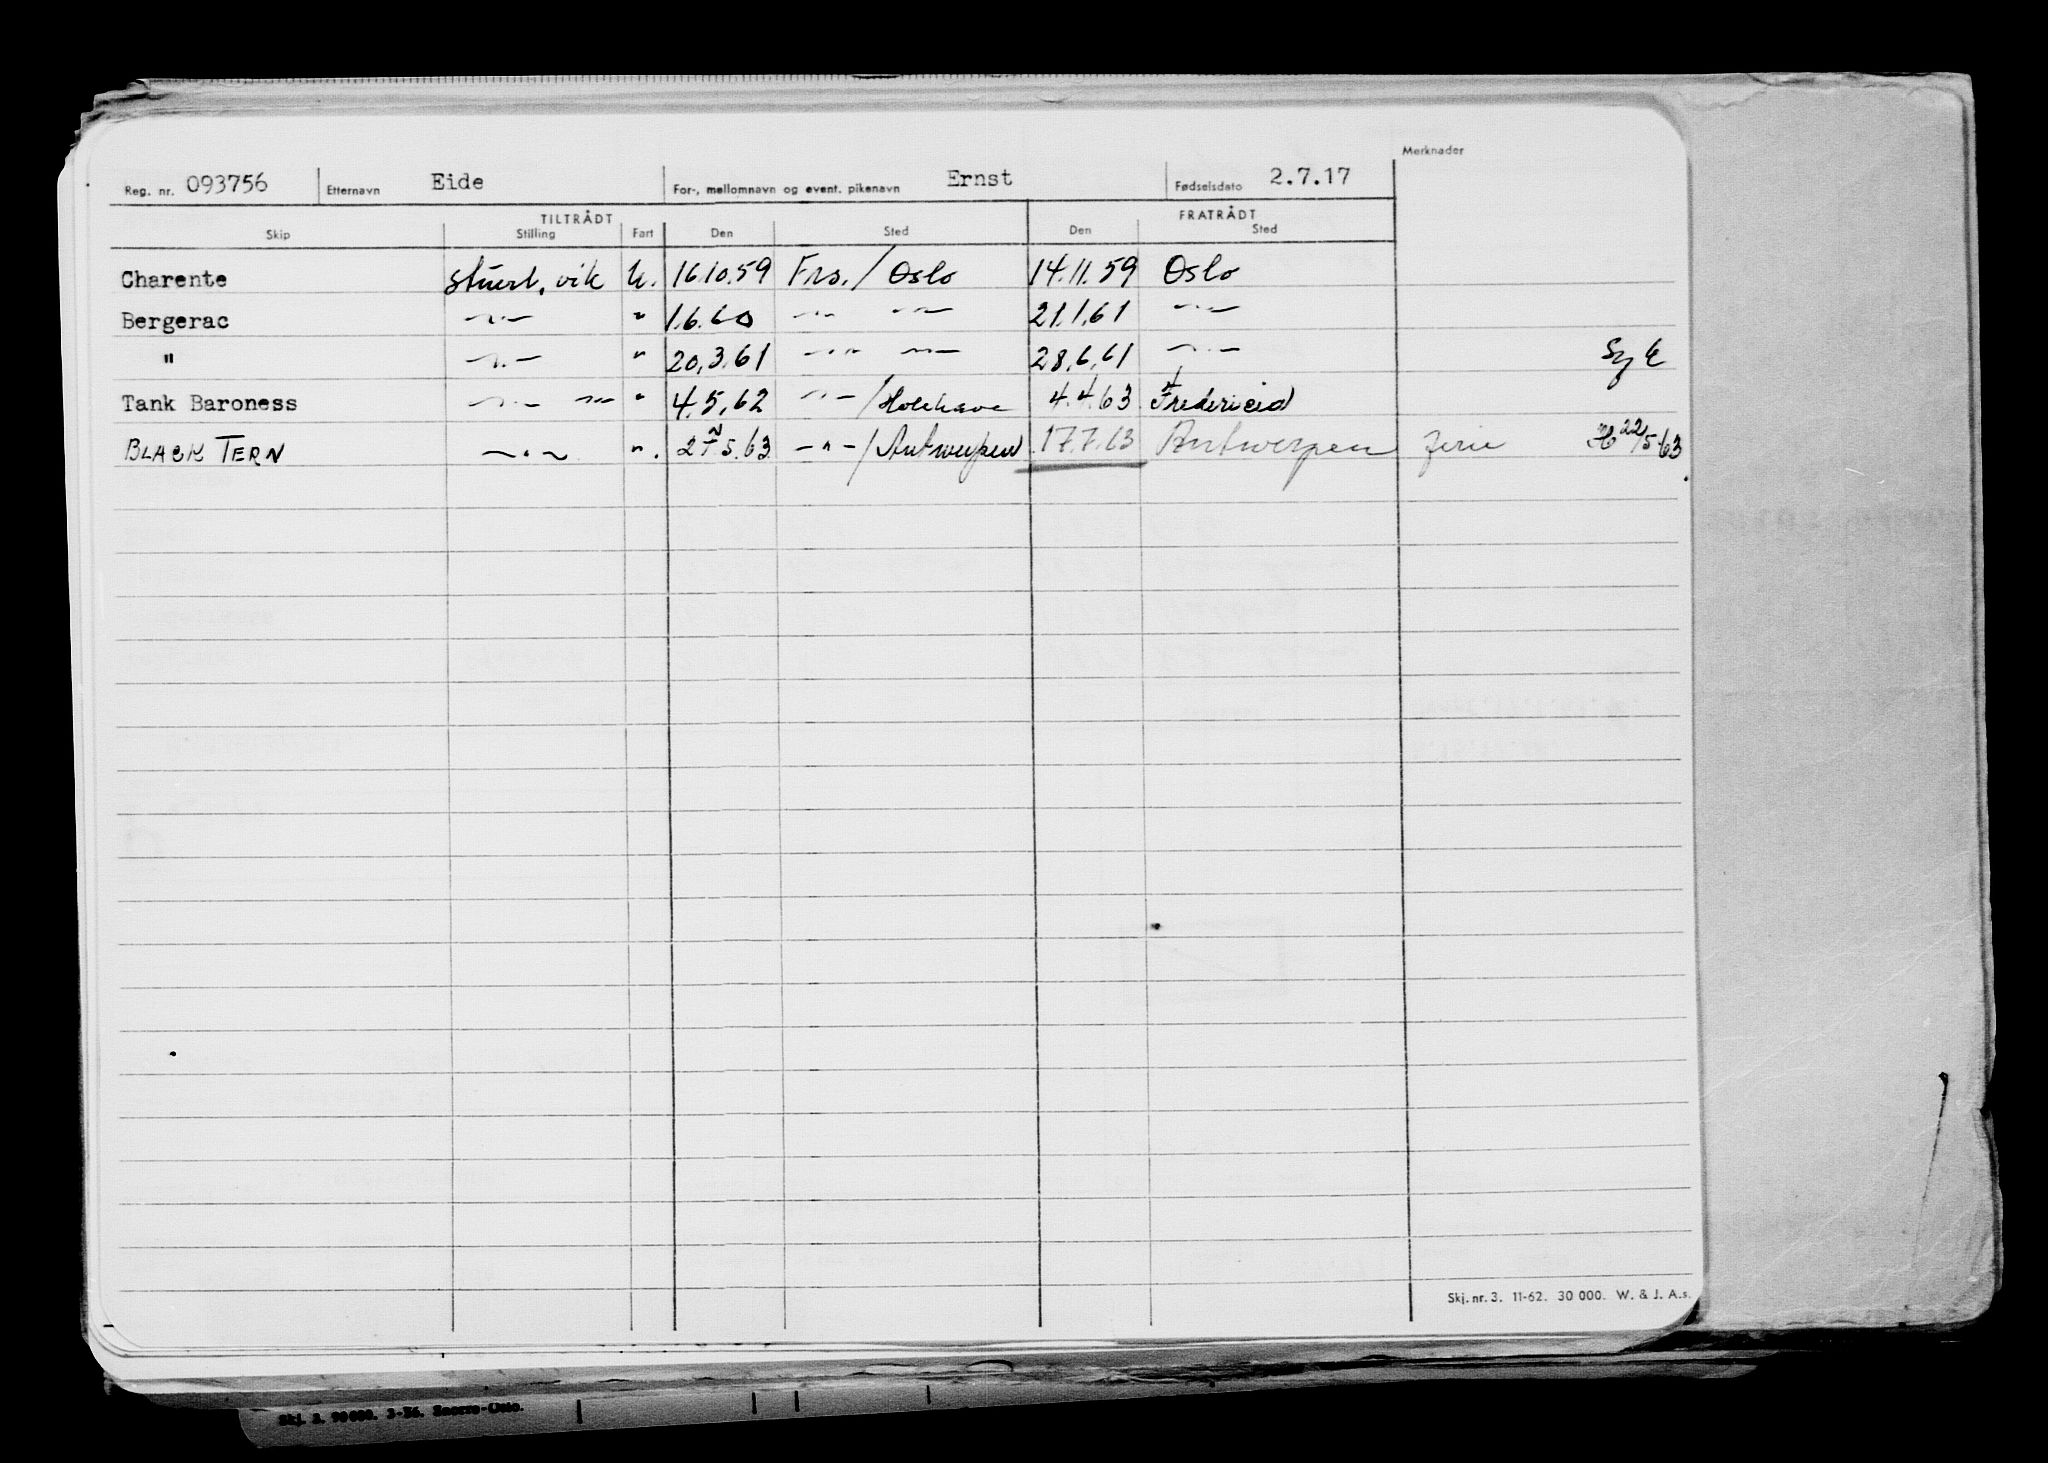 Merknader
Reg. nr. 093756 Etternavn Eide For-, mellomnavn og event. pikenavn Ernst Fødselsdato 2.7.17
TILTRÅDT FRATRÅDT
Skip Stilling Fart Den Sted Den Sted
Charente stuert, vik u. 16.10.59 Fra./ Oslo 14.11.59 Oslo
Bergerac -"- " 1.6.60 -"- -"- 21.1.61 -"-
" -"- " 20.3.61 -"- -"- 28.6.61 -"- Syk
Tank Baroness -"- -"- " 4.5.62 -"-/ 4.4.63
BLACK TERN -"- ". -"-/Antwerpen 17.7.63 Antwerpen ferie 22/5-63
Skj. nr. 3. 11-62. 30 000. W. & J. A.s.
Skj. 3. 90 000. 3-56. Snorre-Oslo.